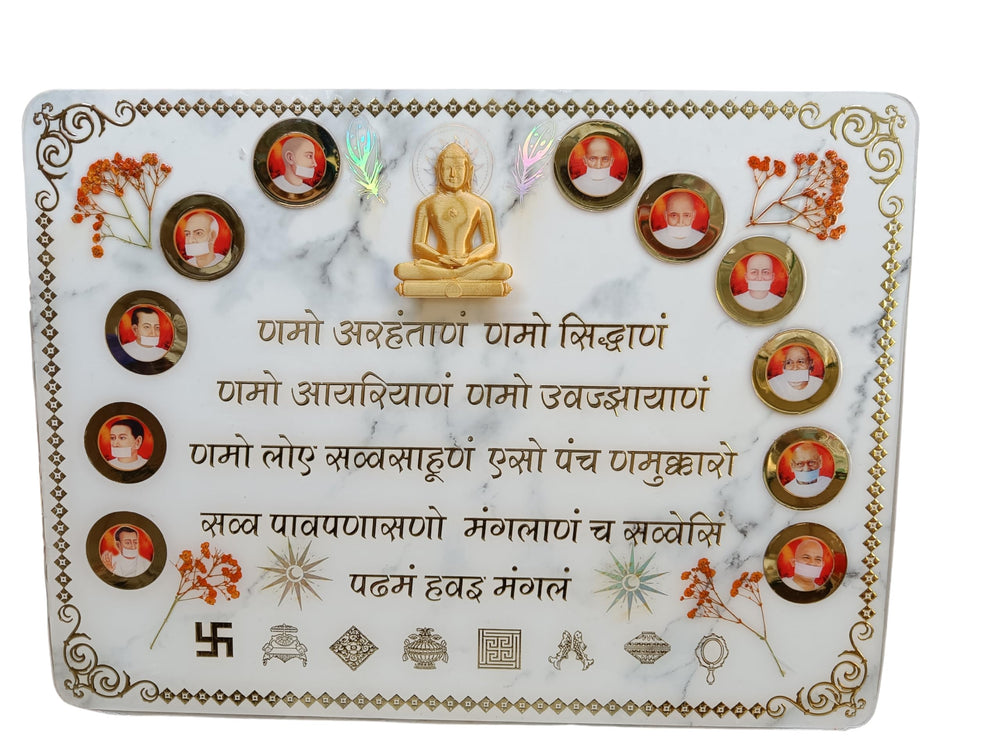 णमो अरहंताणं णमो सिद्धाणं
णमो आयरियाणं णमो उवज्झायाणं
णमो लोए सव्वसाहूणं एसो पंच णमुक्कारो
सव्व पावपणासणो मंगलाणं च सव्वेसिं
पढमं हवइ मंगलं